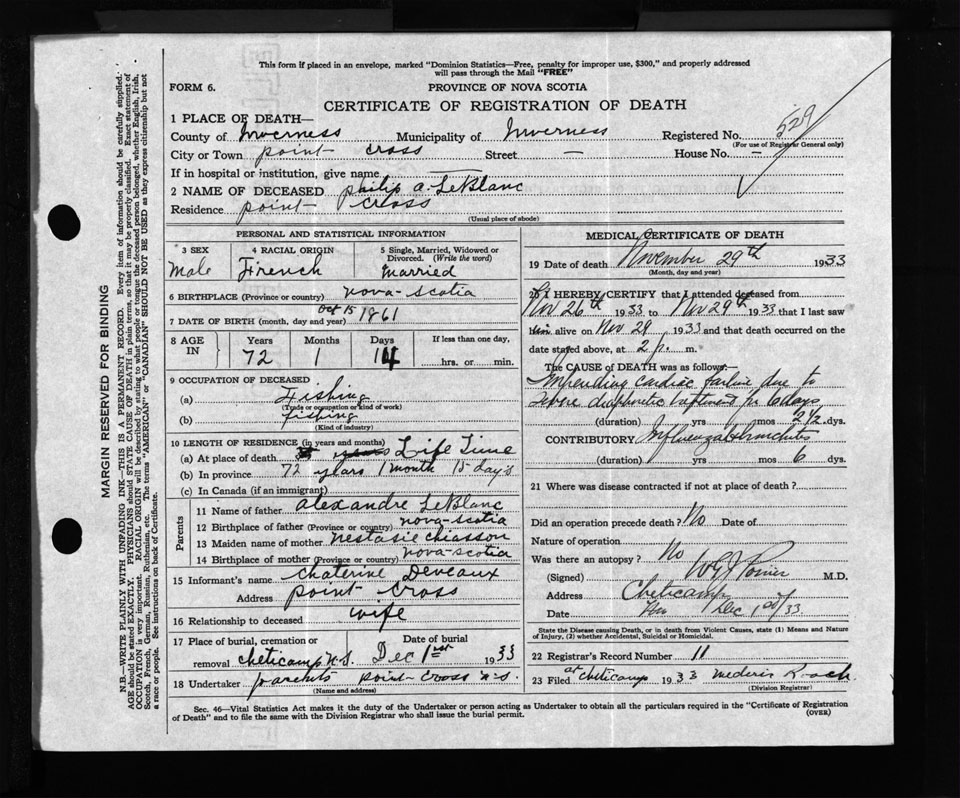 This form if placed in an envelope, marked "Dominion Statistics—Free, penalty for improper use, $300," and properly addressed
will pass through the Mail "FREE"
FORM 6.
PROVINCE OF NOVA SCOTIA
CERTIFICATE OF REGISTRATION OF DEATH
1 PLACE OF DEATH—
County of Inverness Municipality of Inverness Registered No. 529
(For use of Registrar General only)
City or Town point cross Street — House No. —
If in hospital or institution, give name
2 NAME OF DECEASED philip a. LeBlanc
Residence point cross
(Usual place of abode)
PERSONAL AND STATISTICAL INFORMATION
3 SEX 4 RACIAL ORIGIN 5 Single, Married, Widowed or
Divorced. (Write the word)
Male French married
6 BIRTHPLACE (Province or country) nova-scotia
7 DATE OF BIRTH (month, day and year) Oct 15 1861
8 AGE IN Years Months Days If less than one day,
72 1 14 hrs. or min.
9 OCCUPATION OF DECEASED
(a) Fishing
(Trade or occupation or kind of work)
(b) fishing
(Kind of industry)
10 LENGTH OF RESIDENCE (in years and months)
(a) At place of death years Life Time
(b) In province 72 years 1 month 15 days
(c) In Canada (if an immigrant)
Parents
11 Name of father alexandre LeBlanc
12 Birthplace of father (Province or country) nova-scotia
13 Maiden name of mother nestasie chiasson
14 Birthplace of mother (Province or country) nova-scotia
15 Informant's name chaterine Deveaux
Address point cross
16 Relationship to deceased wife
17 Place of burial, cremation or Date of burial
removal cheticamp N.S. Dec 1st 1933
18 Undertaker point-cross n-s.
(Name and address)
MEDICAL CERTIFICATE OF DEATH
19 Date of death November 29th 1933
(Month, day and year)
20 I HEREBY CERTIFY that I attended deceased from
Nov 26th 1933 to Nov 29th 1933 that I last saw
him alive on Nov 29 1933 and that death occurred on
date stated above, at 2 p. m.
The CAUSE of DEATH was as follows:—
Impending cardiac failure due to
severe diaphoretic treatment for 6 days
(duration) yrs mos 2 1/2 dys.
CONTRIBUTORY Influenza Bronchitis
(duration) yrs mos 6 dys.
21 Where was disease contracted if not at place of death?
Did an operation precede death? No Date of
Nature of operation
Was there an autopsy? No
(Signed) M.D.
Address Cheticamp
Date Dec 1st/33
State the Disease causing Death, or in death from Violent Causes, state (1) Means and
Nature of Injury, (2) whether Accidental, Suicidal or Homicidal.
22 Registrar's Record Number 11
23 Filed at Cheticamp 1933
(Division Registrar)
Sec. 46—Vital Statistics Act makes it the duty of the Undertaker or person acting as Undertaker to obtain all the particulars required in the "Certificate of Registration
of Death" and to file the same with the Division Registrar who shall issue the burial permit.
(OVER)
MARGIN RESERVED FOR BINDING
N.B.—WRITE PLAINLY WITH UNFADING INK—THIS IS A PERMANENT RECORD. Every item of information should be carefully supplied.
AGE should be stated EXACTLY. PHYSICIANS should STATE CAUSE OF DEATH in plain terms, so that it may be properly classified. Exact statement of
OCCUPATION is very important. RACIAL ORIGIN will be described by stating to what people or tongue the deceased person belonged, whether English, Irish,
Scotch, French, German, Russian, Ruthenian, etc. The terms "AMERICAN" or "CANADIAN" SHOULD NOT BE USED as they express citizenship but not
a race or people. See instructions on back of Certificate.